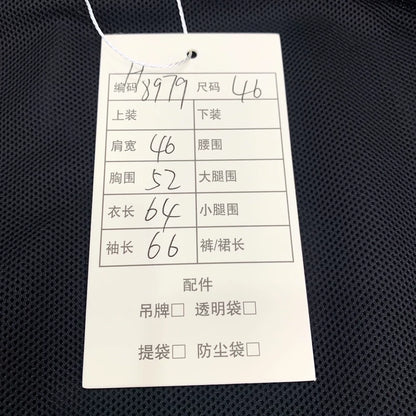 编码 H8979 尺码 46
上装 下装
肩宽 46 腰围
胸围 52 大腿围
衣长 64 小腿围
袖长 66 裤/裙长
配件
吊牌□ 透明袋□
提袋□ 防尘袋□